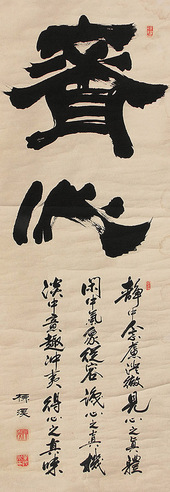 心
靜中念慮澄徹見心之真體
閑中氣象從容識心之真機
淡中意趣沖夷得心之真味